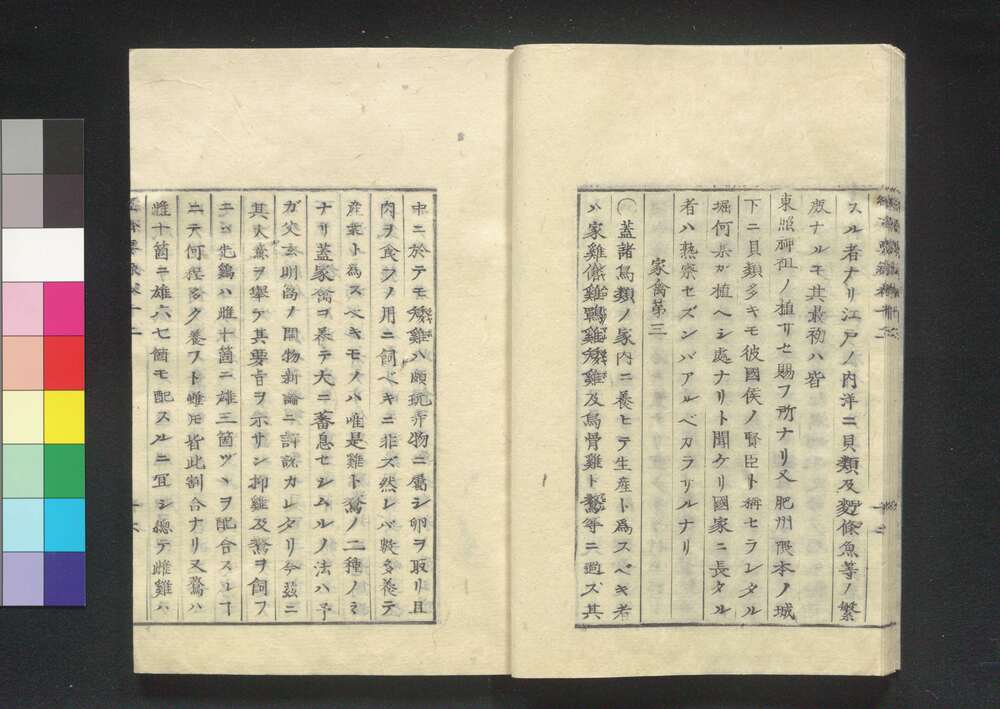 スル者ナリ江戸ノ内洋ニ貝類及麪條魚等ノ繁
殷ナルモ其最初ハ皆
東照神祖ノ植サセ賜フ所ナリ又肥州隈本ノ城
下ニ貝類多キモ彼國侯ノ賢臣ト稱セラレタル
堀何某ガ植ヘシ處ナリト聞ケリ國家ニ長タル
者ハ熟察セズンバアルベカラザルナリ
家禽第三
蓋諸鳥類ノ家内ニ養ヒテ生産ト爲スベキ者
ハ家雞傖雞鸭雞矮雞及烏骨雞ト鶩等ニ過ズ其
中ニ於テモ矮雞ハ頗玩弄物ニ屬シ卵ヲ取リ且
肉ヲ食フノ用ニ飼ベキニ非ズ然レバ數多養テ
産業ト爲スベキモノハ唯是雞ト鶩ノ二種ノミ
ナリ蓋家禽ヲ養テ大ニ蕃息セシムルノ法ハ予
ガ父玄明窩ノ開物新論ニ詳説カレタリ今茲ニ
其大意ヲ擧ケ其要旨ヲ示サン抑雞及鶩ヲ飼フ
ニハ先鷄ハ雌十箇ニ雄三箇ヅヽヲ配合スルナ
ニテ何程多ク養フト雖モ皆此割合ナリ又鶩ハ
雌十箇ニ雄六七箇モ配スルニ宜シ總テ雌雞ハ